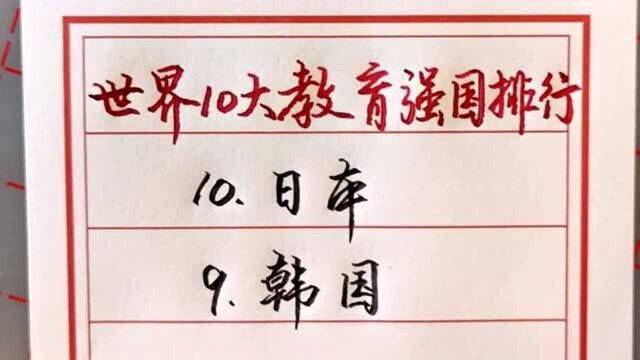 世界10大教育强国排行
10.日本
9.韩国